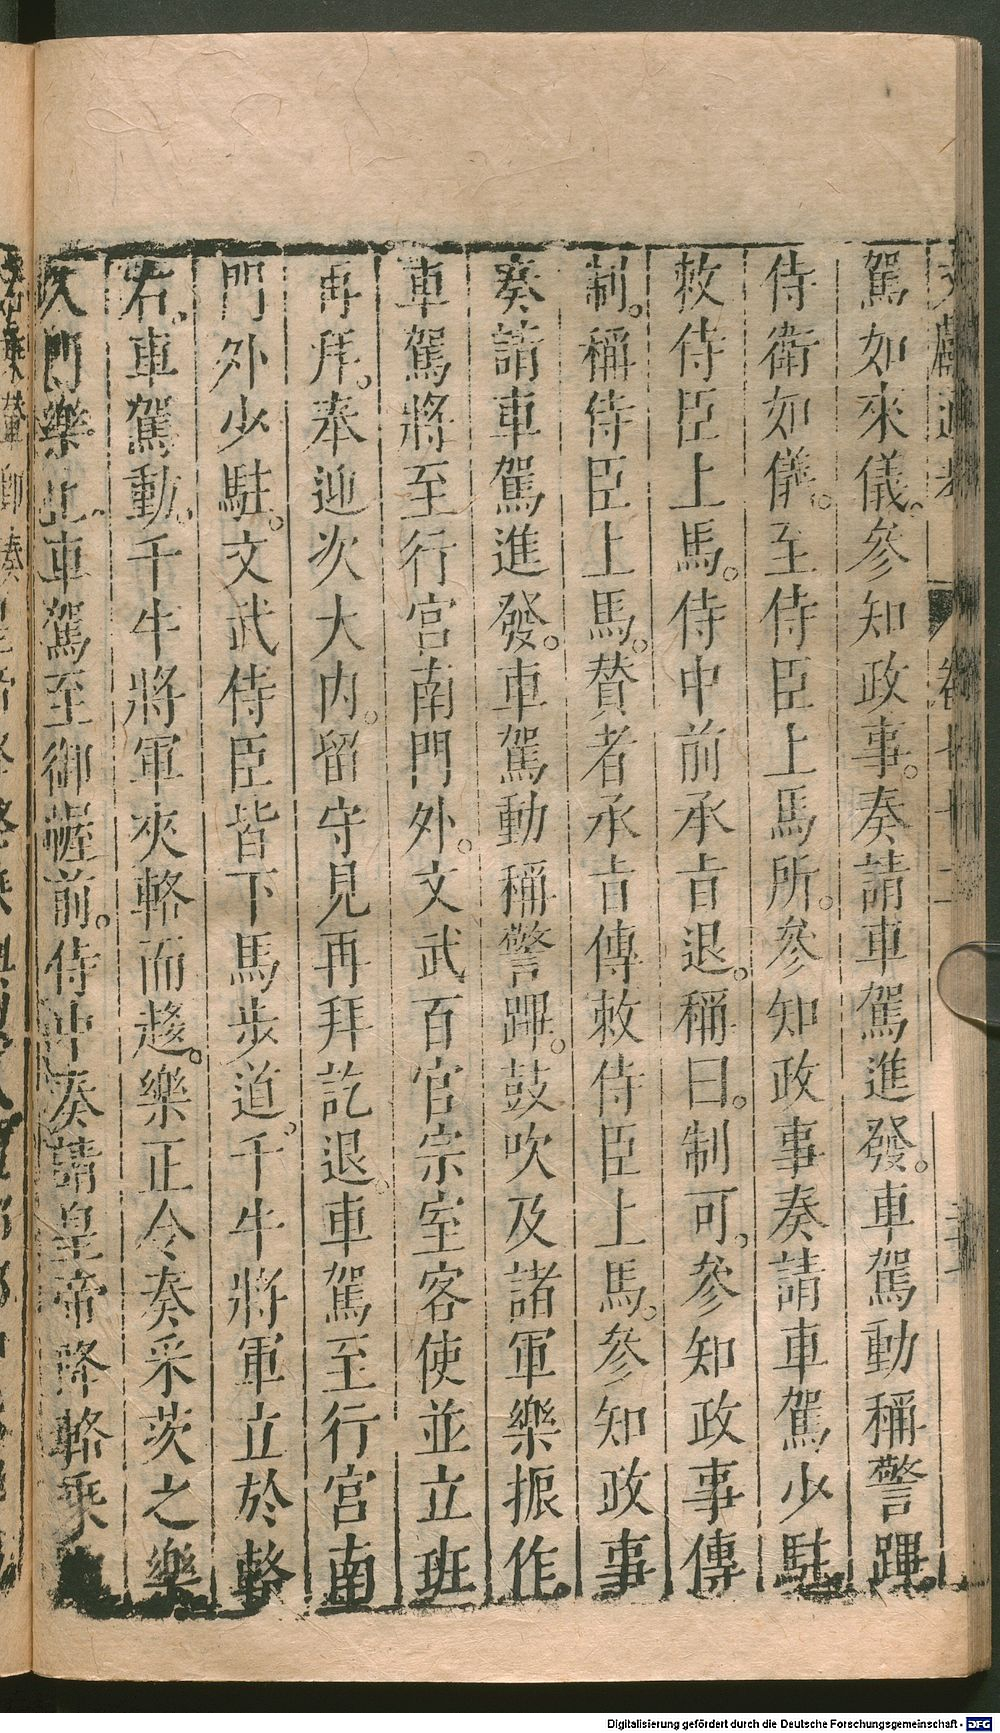 駕如來儀。參知政事。奏請車駕進發。車駕動稱警蹕
侍衛如儀。至侍臣上馬所。參知政事奏請車駕少駐
敕侍臣上馬。侍中前承㫖退。稱曰。制可。參知政事傳
制。稱侍臣上馬。贊者承㫖傳敕侍臣上馬。參知政事
奏請車駕進發。車駕動稱警蹕。鼓吹及諸軍樂振作。
車駕將至行宮南門外。文武百官宗室客使並立班
再拜。奉迎次大內。留守見再拜訖退。車駕至行宮南
門外少駐。文武侍臣皆下馬步道。千牛將軍立於輅
右。車駕動。千牛將軍夾輅而趨。樂正令奏采茨之樂
入門樂止。車駕至御幄前。侍中奏請皇帝降輅乘
Digitalisierung gefördert durch die Deutsche Forschungsgemeinschaft - DFG